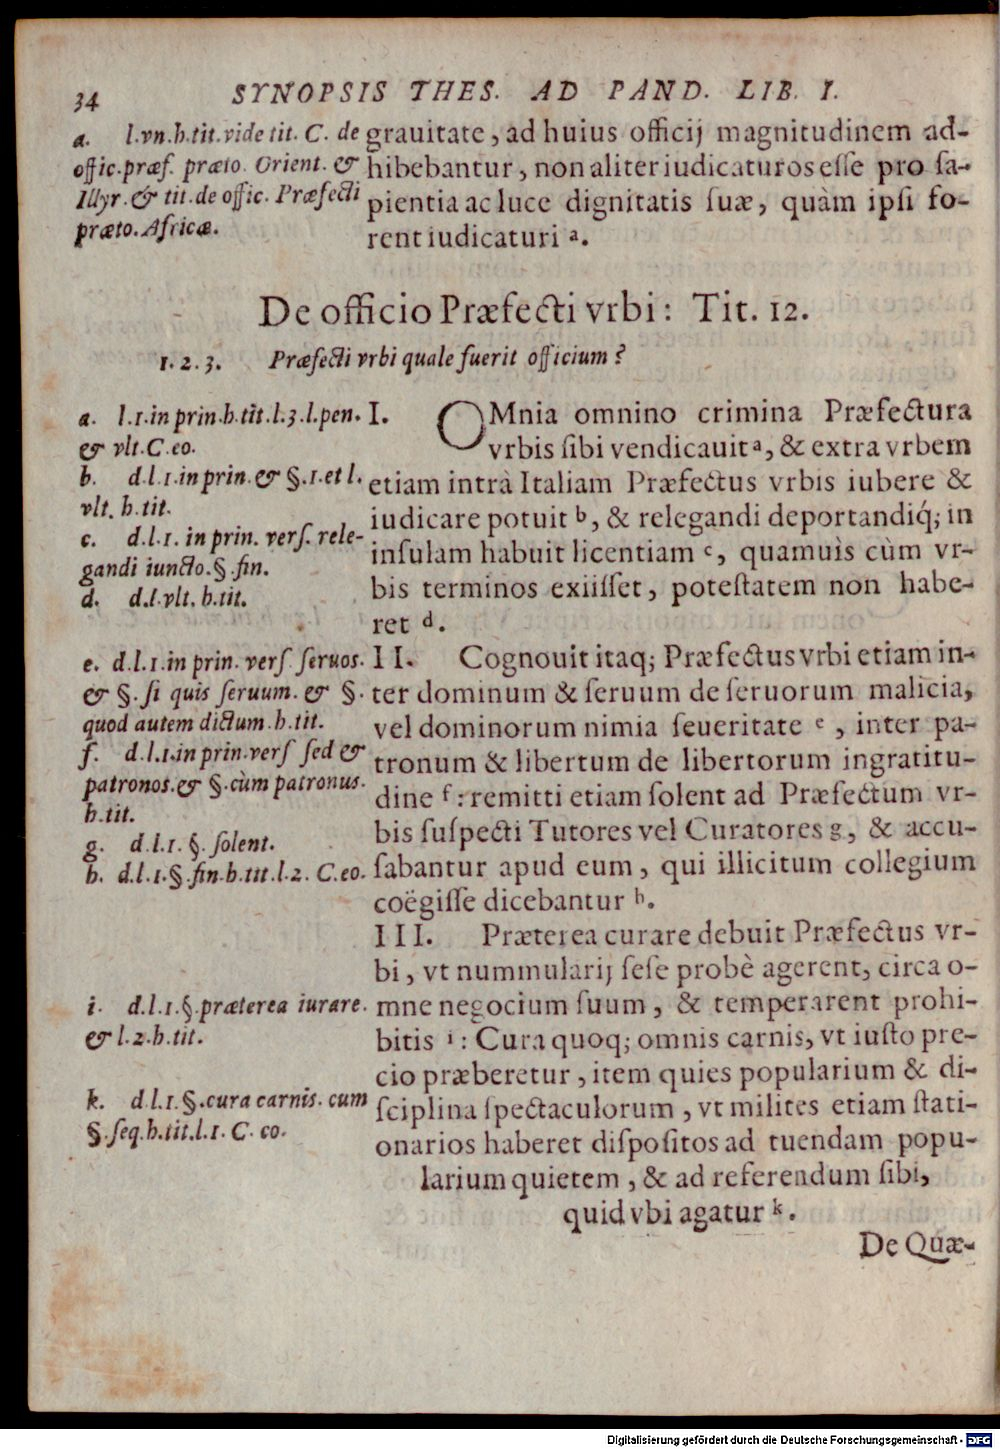 34
SYNOPSIS THES. AD PAND. LIB. I.
a. l.vn.h.tit.vide tit. C. de
offic.præf. præto. Orient. &
Illyr. & tit. de offic. Præfecti
præto. Africæ.
grauitate, ad huius officij magnitudinem ad-
hibebantur, non aliter iudicaturos esse pro sa-
pientia ac luce dignitatis suæ, quàm ipsi fo-
rent iudicaturi a.
De officio Præfecti vrbi: Tit. 12.
1. 2. 3. Præfecti vrbi quale fuerit officium?
a. l.1.in prin.h.tit.l.3.l.pen.
& vlt.C.eo.
b. d.l.1.in prin. & §.1.et l.
vlt. h.tit.
c. d.l.1. in prin. vers. rele-
gandi iuncto.§.fin.
d. d.l.vlt. h.tit.
I. OMnia omnino crimina Præfectura
vrbis sibi vendicauit a, & extra vrbem
etiam intrà Italiam Præfectus vrbis iubere &
iudicare potuit b, & relegandi deportandiq́; in
insulam habuit licentiam c, quamuìs cùm vr-
bis terminos exiisset, potestatem non habe-
ret d.
e. d.l.1.in prin. vers seruos.
& §. si quis seruum. & §.
quod autem dictum.h.tit.
f. d.l.1.in prin.vers sed &
patronos.& §.cùm patronus.
h.tit.
g. d.l.1. §. solent.
h. d.l.1.§.fin.h.tit.l.2. C.eo.
II. Cognouit itaq; Præfectus vrbi etiam in-
ter dominum & seruum de seruorum malicia,
vel dominorum nimia seueritate e, inter pa-
tronum & libertum de libertorum ingratitu-
dine f: remitti etiam solent ad Præfectum vr-
bis suspecti Tutores vel Curatores g, & accu-
sabantur apud eum, qui illicitum collegium
coëgisse dicebantur h.
i. d.l.1.§.præterea iurare.
& l.2.h.tit.
k. d.l.1.§.cura carnis. cum
§.seq.h.tit.l.1. C. eo.
III. Præterea curare debuit Præfectus vr-
bi, vt nummularij sese probè agerent, circa o-
mne negocium suum, & temperarent prohi-
bitis i: Cura quoq; omnis carnis, vt iusto pre-
cio præberetur, item quies popularium & di-
sciplina spectaculorum, vt milites etiam stati-
onarios haberet dispositos ad tuendam popu-
larium quietem, & ad referendum sibi,
quid vbi agatur k.
De Quæ-
Digitalisierung gefördert durch die Deutsche Forschungsgemeinschaft - DFG